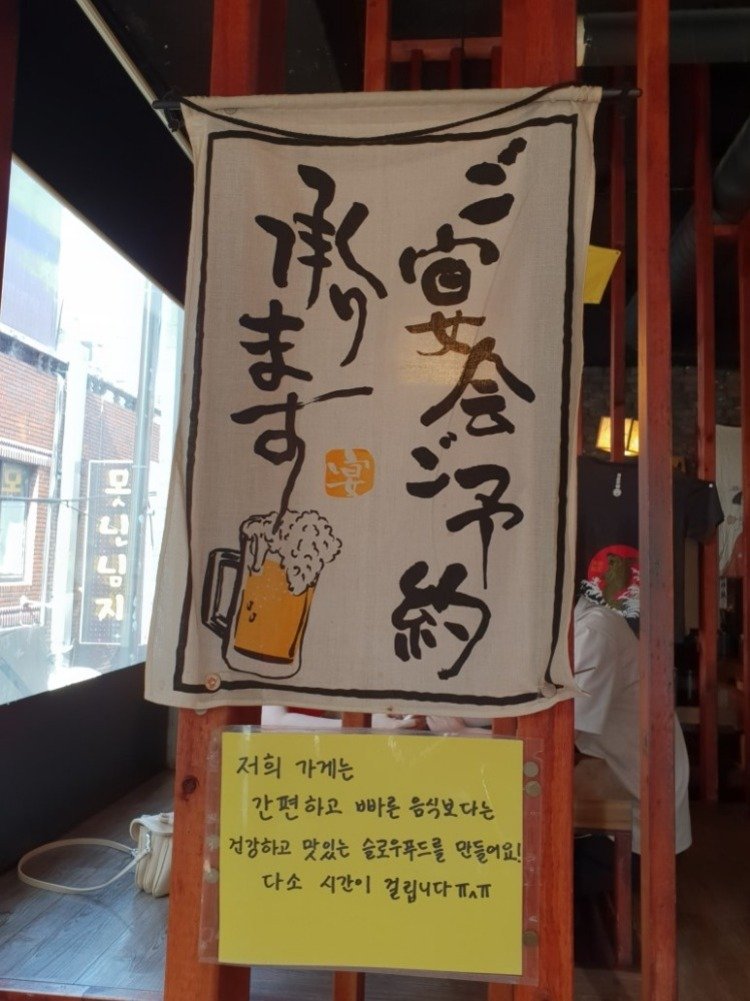 ご宴会ご予約
承ります
宴
저희 가게는
간편하고 빠른 음식보다는
건강하고 맛있는 슬로우푸드를 만들어요!
다소 시간이 걸립니다 ㅠㅅㅠ
못난님지